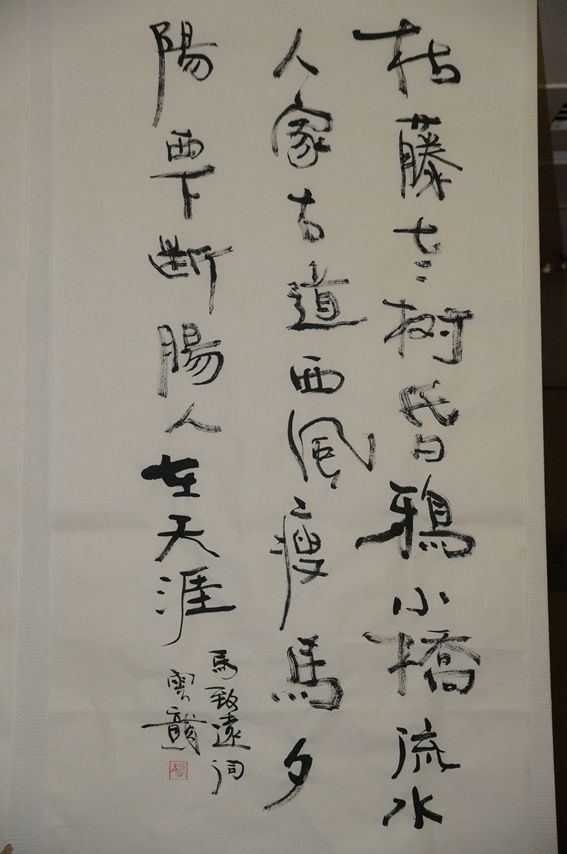 枯藤老树昏鴉小橋流水
人家古道西風瘦馬夕
陽西下断腸人在天涯
馬致遠词
雲龍